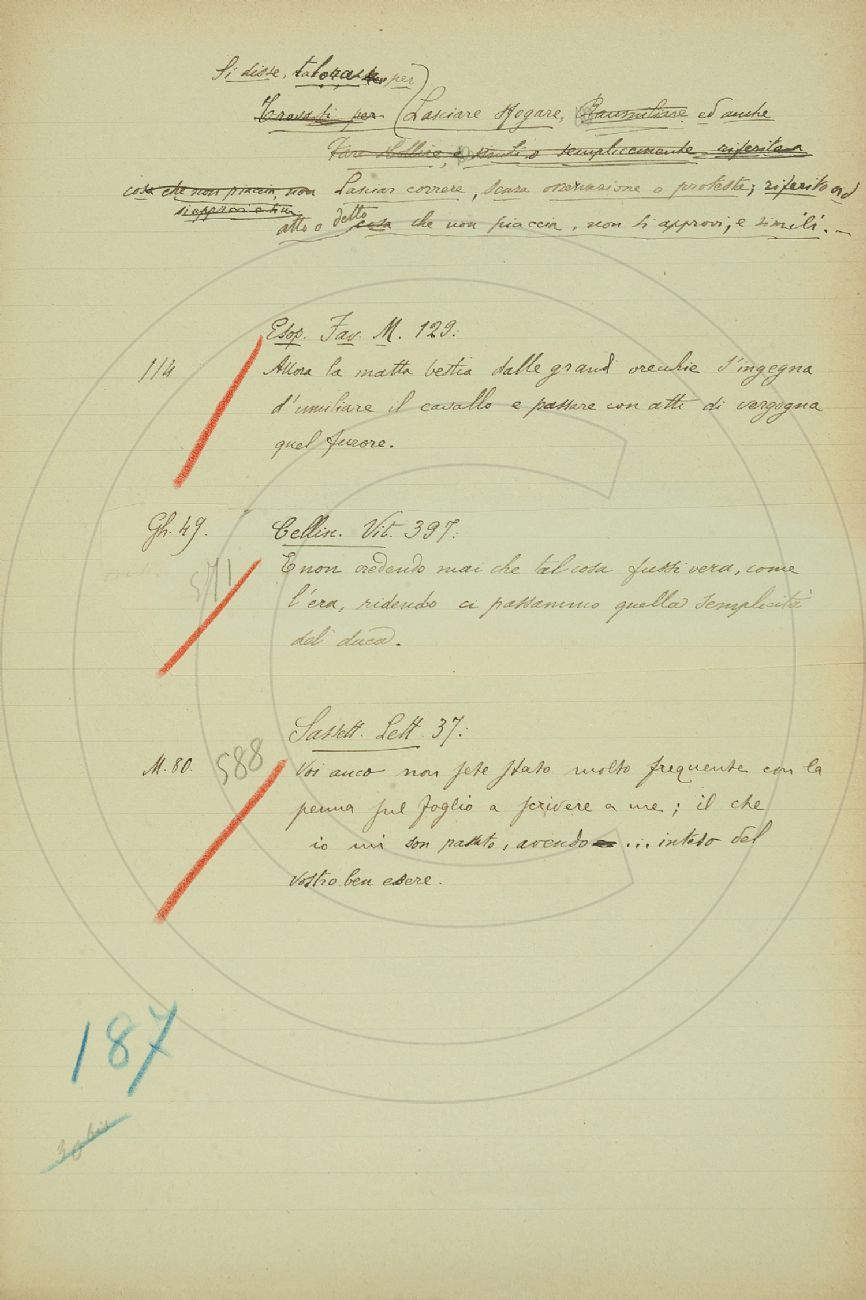 Si disse, talora per
Trovasi per (Lasciare sfogare, Raumiliare ed anche
Fare simili o semplicemente riferita a
cosa che non piaccia, non Lasciar correre, senza osservazione o proteste; riferito ad
si approvi e sim
atto o detto cosa che non piaccia, non si approvi, e simili. –
Esop. Fav. M. 129:
114 Allora la matta bestia dalle grandi orecchie s'ingegna
d'umiliare il cavallo e passare con atti di vergogna
quel furore.
Gh. 49. Cellin. Vit. 397:
571 E non credendo mai che tal cosa fussi vera, come
l'era, ridendo ci passammo quella semplicità
del duca.
Sassett. Lett. 37:
M. 80. 588 Voi anco non sete stato molto frequente con la
penna sul foglio a scrivere a me; il che
io mi son passato, avendo ... inteso del
vostro ben essere.
187
30 bis